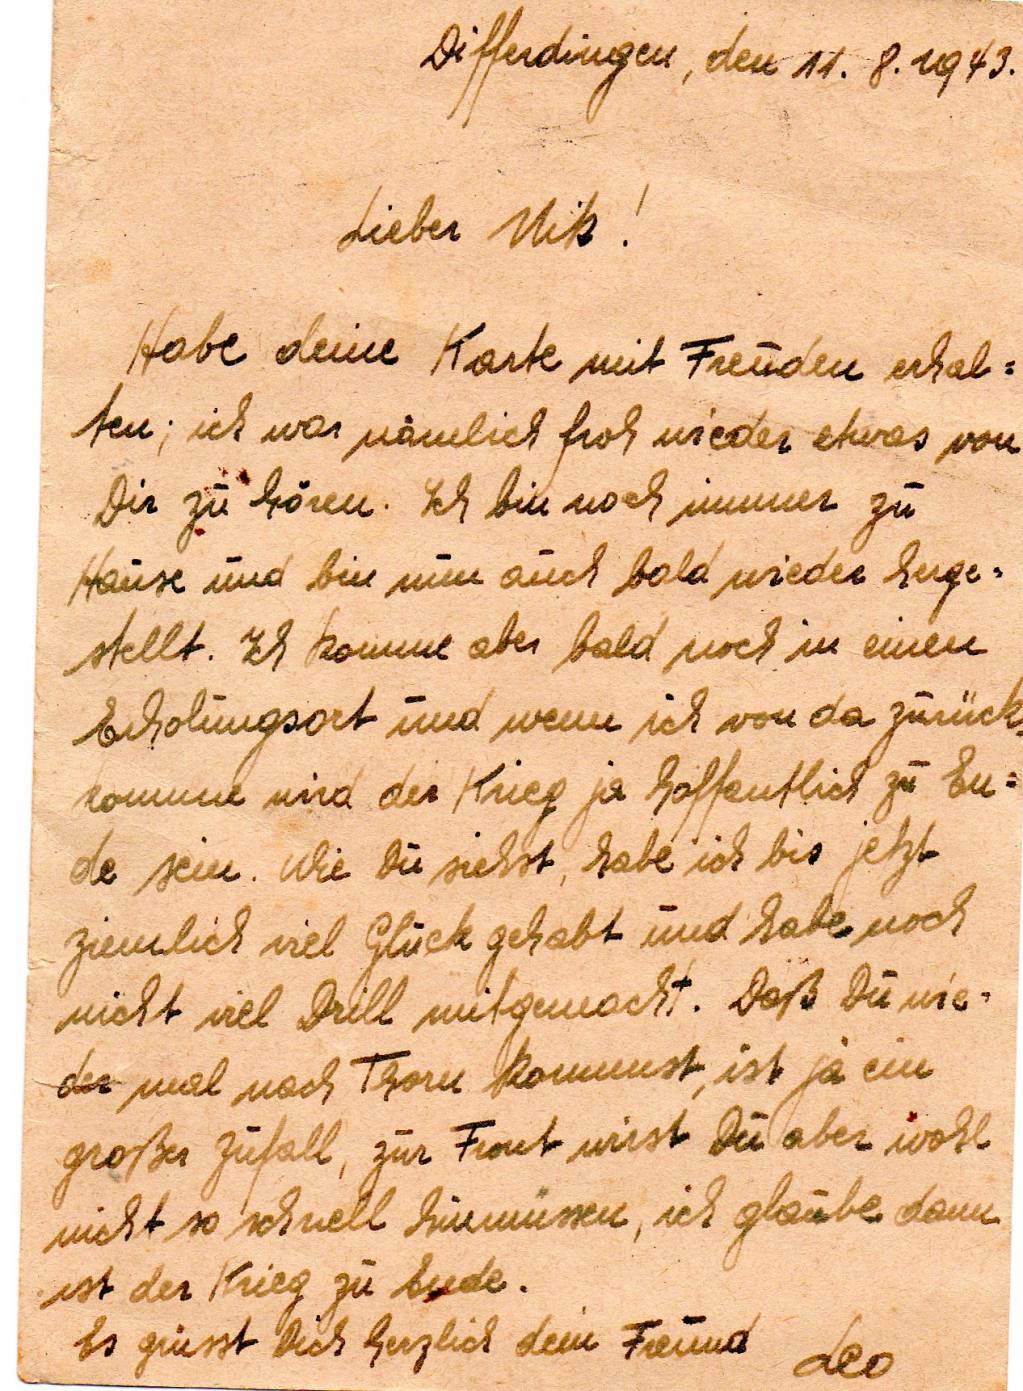 Differdingen, den 11. 8. 1943.
Lieber Nik!
Habe deine Karte mit Freuden erhal=
ten; ich war nämlich froh wieder etwas von
Dir zu hören. Ich bin noch immer zu
Hause und bin nun auch bald wieder herge=
stellt. Ich komme aber bald noch in einen
Erholungsort und wenn ich von da zurück=
komme wird der Krieg ja hoffentlich zu En=
de sein. Wie Du siehst, habe ich bis jetzt
ziemlich viel Glück gehabt und habe noch
nicht viel Drill mitgemacht. Daß Du wie=
der mal nach Thorn kommst, ist ja ein
großer Zufall, zur Front wirst Du aber wohl
nicht so schnell hinmüssen, ich glaube dann
ist der Krieg zu Ende.
Es grüsst Dich herzlich dein Freund Leo